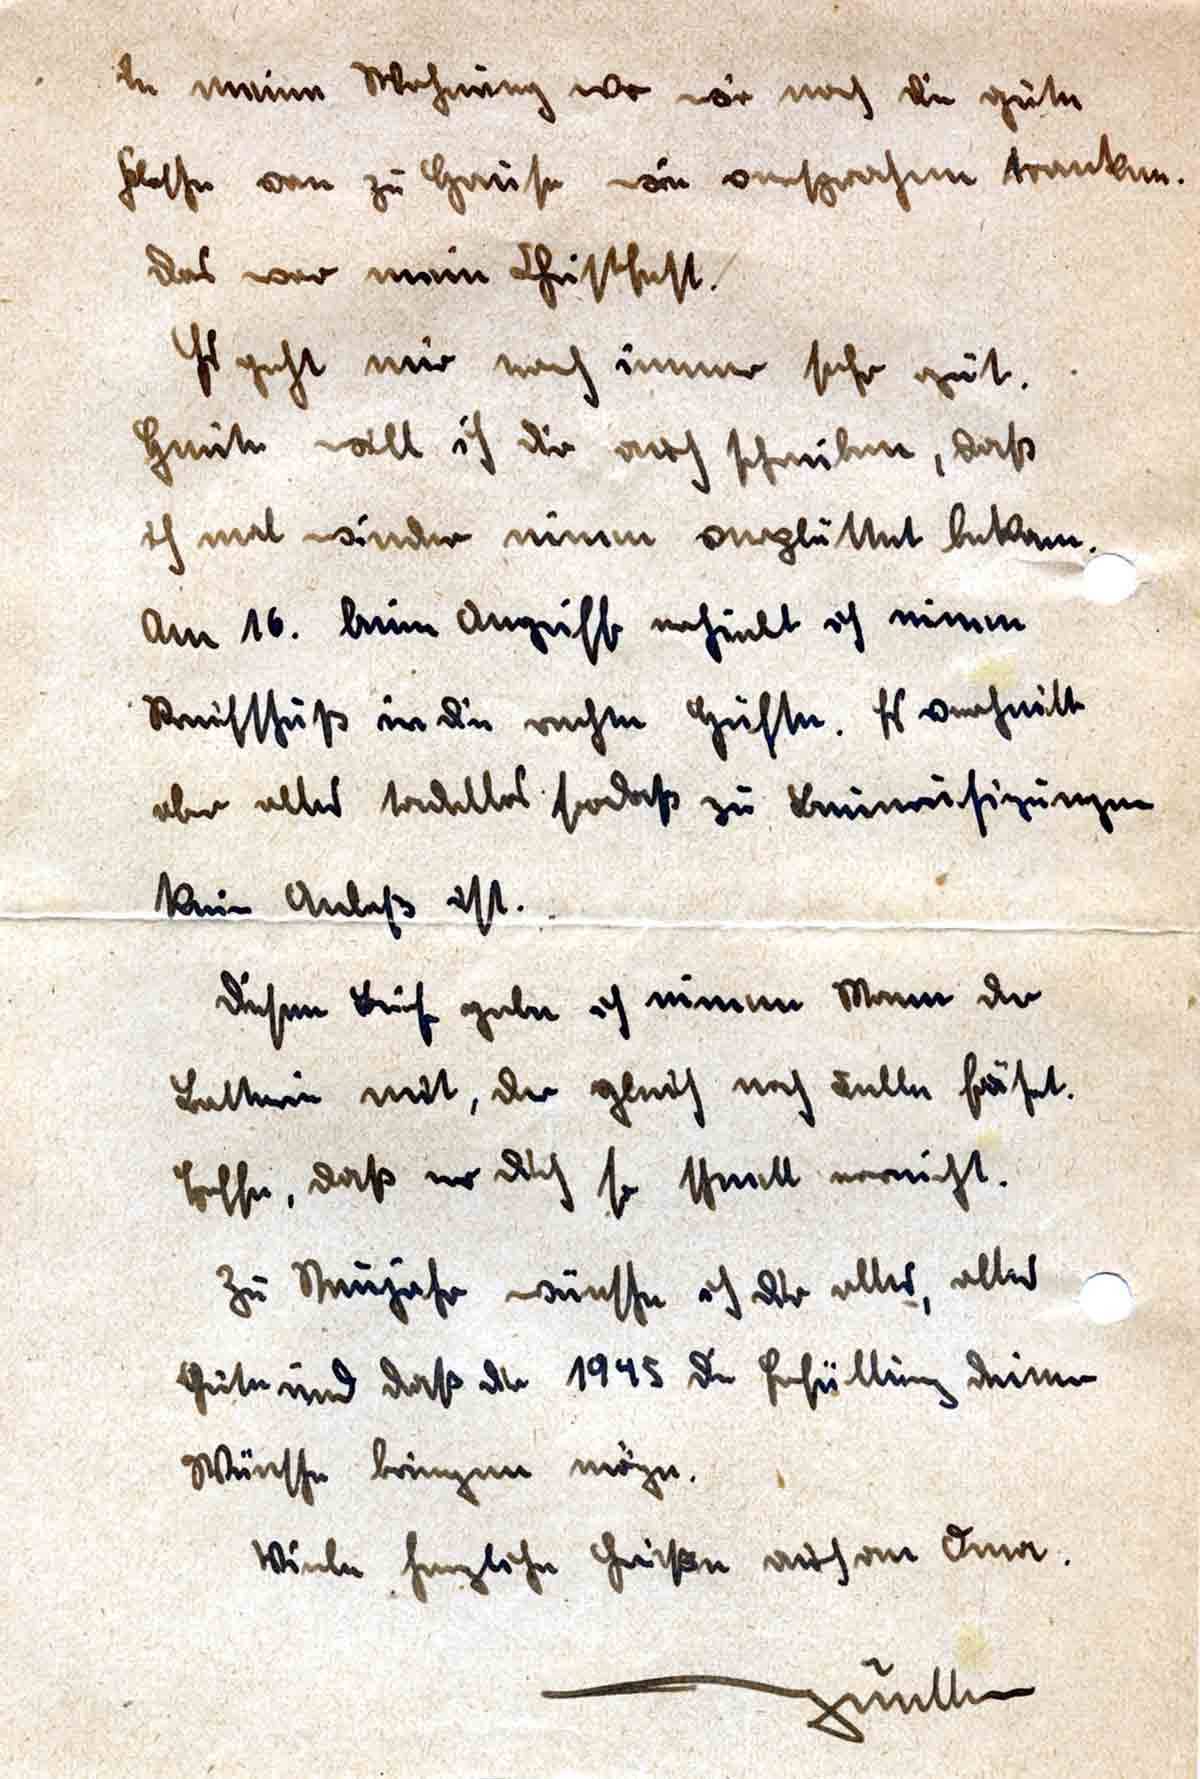 in meine Wohnung wo wir noch die gute
Flasche von zu Hause wie versprochen tranken.
Das war mein Christfest.
Es geht mir noch immer sehr gut.
Heute will ich dir auch schreiben, daß
ich mal wieder einen verplättet bekam.
Am 16. beim Angriff erhielt ich einen
Streifschuß in die rechte Hüfte. Es verheilt
aber alles tadellos sodaß zu Beunruhigungen
kein Anlaß ist.
Diesen Brief gebe ich einem Mann der
Batterie mit, der gleich nach Celle fährt.
Hoffe, daß er dich so schnell erreicht.
Zu Neujahr wünsche ich dir alles, alles
Gute und daß dir 1945 die Erfüllung deiner
Wünsche bringen möge.
Viele herzliche Grüße auch an Oma.